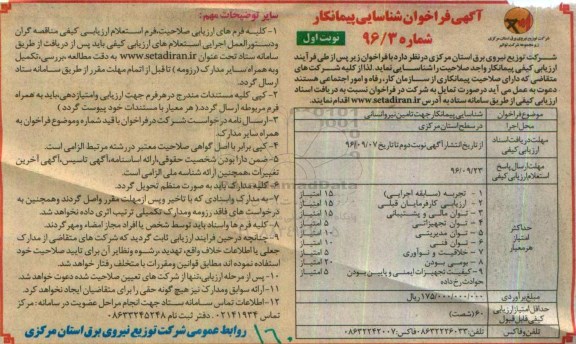 آگهی فراخوان شناسایی پیمانکار
شماره ۹۶/۳
نوبت اول
شرکت توزیع نیروی برق استان مرکزی در نظر دارد با فراخوان زیر پس از طی فرآیند
ارزیابی کیفی پیمانکار واجد صلاحیت را شناسایی نماید. لذا از کلیه شرکت های
متقاضی که دارای صلاحیت پیمانکاری از سازمان کار، رفاه و امور اجتماعی هستند
دعوت به عمل می آید در صورت تمایل به شرکت در فراخوان نسبت به دریافت اسناد
ارزیابی کیفی از طریق سامانه ستاد به آدرس www.setadiran.ir اقدام نمایند.
موضوع فراخوان شناسایی پیمانکار جهت تامین نیرو انسانی
محل اجرا در سطح استان مرکزی
مهلت دریافت اسناد ارزیابی کیفی از تاریخ انتشار آگهی نوبت دوم تا تاریخ ۹۶/۰۹/۰۷
مهلت ارسال پاسخ استعلام ارزیابی کیفی ۹۶/۰۹/۲۳
حداکثر امتیاز هر معیار
۱- تجربه (سابقه اجرایی) ۱۵ امتیاز
۲- ارزیابی کارفرمایان قبلی ۱۵ امتیاز
۳- توان مالی و پشتیبانی ۱۵ امتیاز
۴- توان تجهیزاتی ۵ امتیاز
۵- توان مدیریتی ۱۰ امتیاز
۶- توان فنی ۱۰ امتیاز
۷- خلاقیت و نوآوری ۵ امتیاز
۸- بومی بودن ۲۰ امتیاز
۹- کیفیت تجهیزات ایمنی و پایین بودن حوادث رخ داده ۵ امتیاز
مبلغ برآوردی ۱۷۵/۰۰۰/۰۰۰ ریال
حداقل امتیاز ارزیابی کیفی قابل قبول ۶۰ (شصت)
تلفن و فاکس تلفن: ۰۸۶۳۲۲۲۶۰۳۳ فاکس: ۰۸۶۳۲۲۴۲۰۰۷
سایر توضیحات مهم:
۱- کلیه فرم های ارزیابی صلاحیت، فرم استعلام ارزیابی کیفی مناقصه گران
و دستورالعمل اجرایی استعلام های ارزیابی کیفی باید پس از دریافت از طریق
سامانه ستاد تحت عنوان www.setadiran.ir به دقت مطالعه، بررسی، تکمیل
و به همراه سایر مدارک (رزومه) تا قبل از اتمام مهلت مقرر از طریق سامانه ستاد
ارسال گردد.
۲- کپی کلیه مستندات مندرج در هر فرم جهت ارزیابی و امتیازدهی، باید به همراه
فرم مربوطه ارسال گردد. (هر معیار با مستندات خود پیوست گردد)
۳- ارسال نامه درخواست شرکت در فراخوان با قید شماره و موضوع فراخوان به
همراه سایر مدارک.
۴- کپی برابر با اصل گواهی صلاحیت معتبر در رشته مرتبط الزامی است.
۵- ضمن دارا بودن شخصیت حقوقی، ارائه اساسنامه، آگهی تاسیس، آگهی آخرین
تغییرات، همچنین ارائه شناسه ملی الزامی است.
۶- کلیه مدارک باید به صورت منظم تحویل گردد.
۷- به مدارک و اسنادی که با تاخیر و پس از مهلت مقرر واصل گردند و همچنین به
درخواست های فاقد رزومه و مدارک تکمیلی ترتیب اثری داده نخواهد شد.
۸- کلیه فرم ها و اسناد باید توسط شخص یا افراد مجاز امضاء و مهر گردند.
۹- چنانچه در حین فرآیند ارزیابی ثابت گردید که شرکت های متقاضی از مدارک
جعلی یا اطلاعات خلاف واقع، تهدید، رشوه و نظایر آن برای تایید صلاحیت خود
استفاده نموده اند مطابق قوانین و مقررات با متخلف رفتار خواهد شد.
۱۰- پس از مرحله ارزیابی، تنها از شرکت های تعیین صلاحیت شده دعوت خواهد شد.
۱۱- ارائه سوابق و مدارک نیز هیچ گونه حقی را برای متقاضیان ایجاد نخواهد کرد.
۱۲- اطلاعات تماس سامانه ستاد جهت انجام مراحل عضویت در سامانه: مرکز
تماس ۰۲۱۴۱۹۳۴، دفتر ثبت نام ۰۸۶۳۳۲۴۵۲۴۸
روابط عمومی شرکت توزیع نیروی برق استان مرکزی